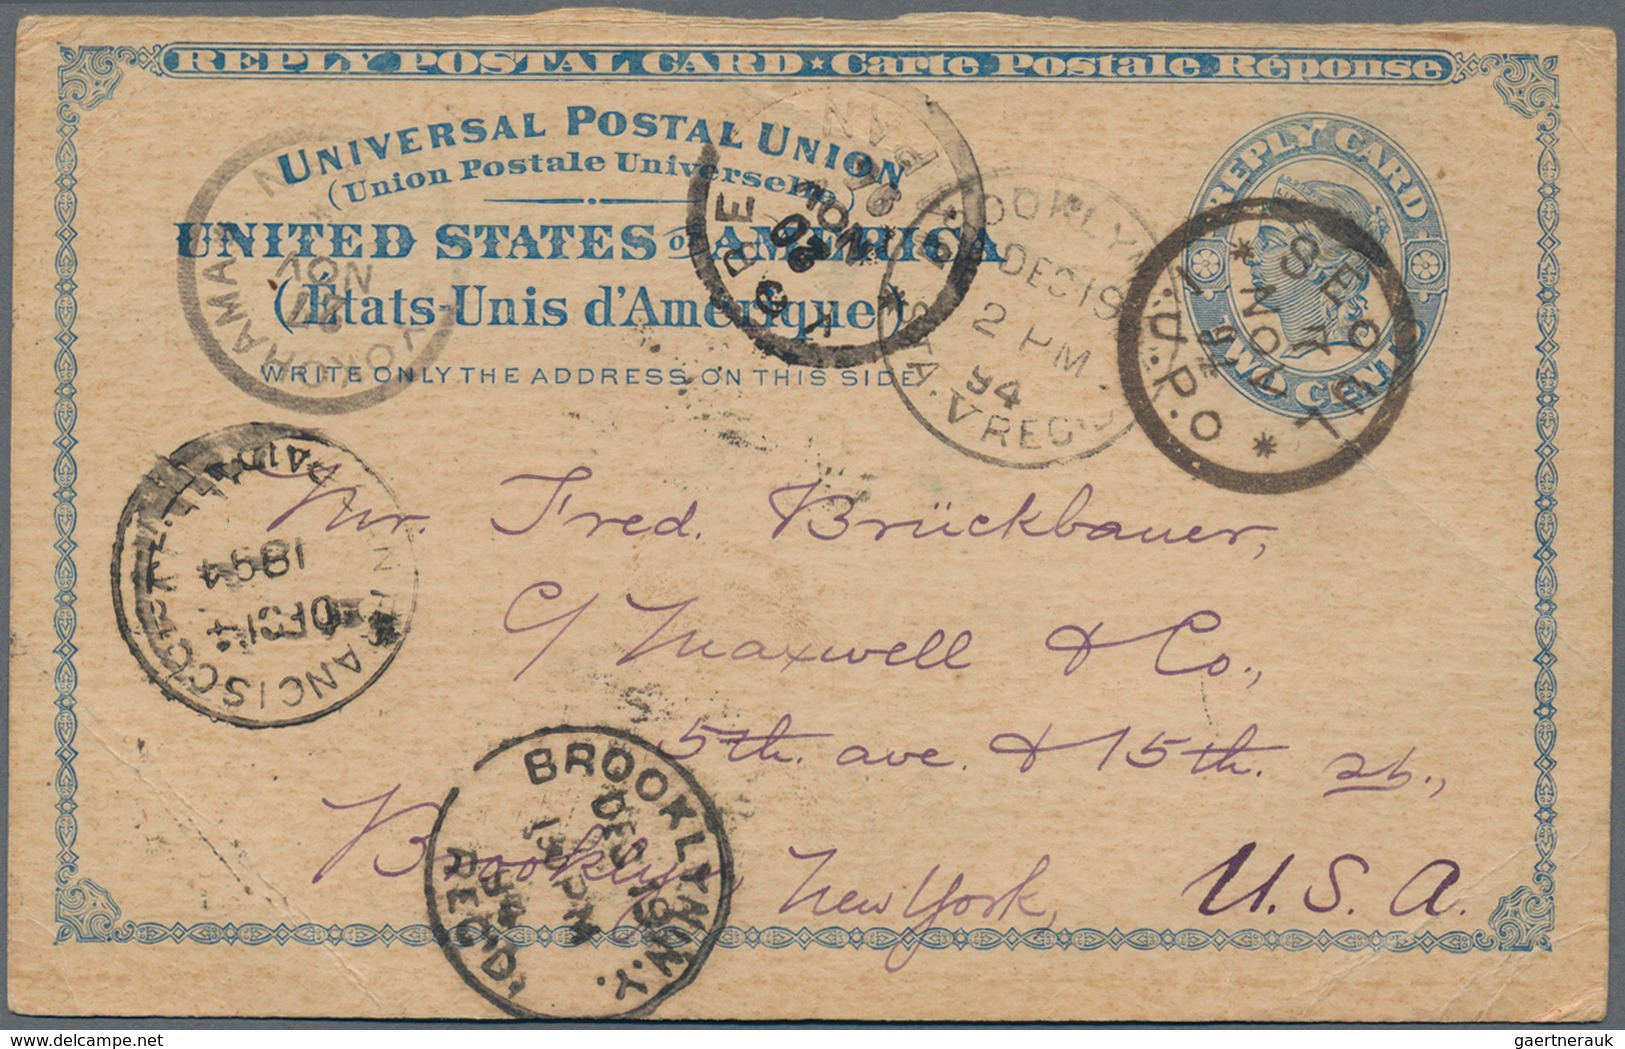 REPLY POSTAL CARD ★ Carte Postale Réponse
UNIVERSAL POSTAL UNION
(Union Postale Universelle)
UNITED STATES OF AMERICA
(États-Unis d'Amérique)
WRITE ONLY THE ADDRESS ON THIS SIDE
REPLY CARD
TWO CENTS
YOKOHAMA
NOV
27
KOBE
JAPAN
20
NOV
BROOKLYN
DEC 19
2 PM
94
STA. V REC'D
SEOUL
I.J.P.O.
7
NOV
94
SAN FRANCISCO
PAID ALL
1894
BROOKLYN, N.Y.
DEC 19
94
REC'D.
Mr. Fred. Brückbauer,
c/ Maxwell & Co.,
5th ave. & 15th. st.,
Brooklyn, New York,
U. S. A.
gaertnerauk